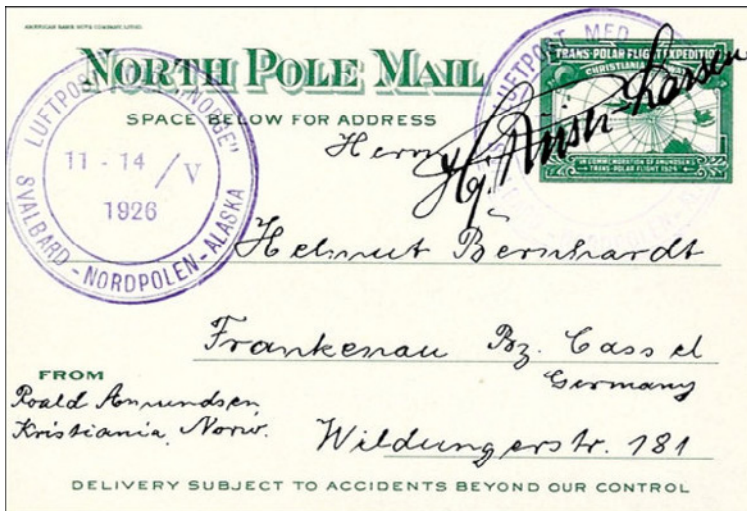 AMERICAN BANK NOTE COMPANY, LITHO.
NORTH POLE MAIL
SPACE BELOW FOR ADDRESS
LUFTPOST "NORGE"
11 - 14 / V
1926
SVALBARD - NORDPOLEN - ALASKA
LUFTPOST MED
TRANS-POLAR FLIGHT EXPEDITION
CHRISTIANIA
IN COMMEMORATION OF AMUNDSEN'S
TRANS-POLAR FLIGHT 1924
Hj. Riiser Larsen
Herrn
Helmut Bernhardt
Frankenau Bz. Cassel
Germany
FROM
Roald Amundsen
Kristiania, Norw.
Wildungerstr. 181
DELIVERY SUBJECT TO ACCIDENTS BEYOND OUR CONTROL